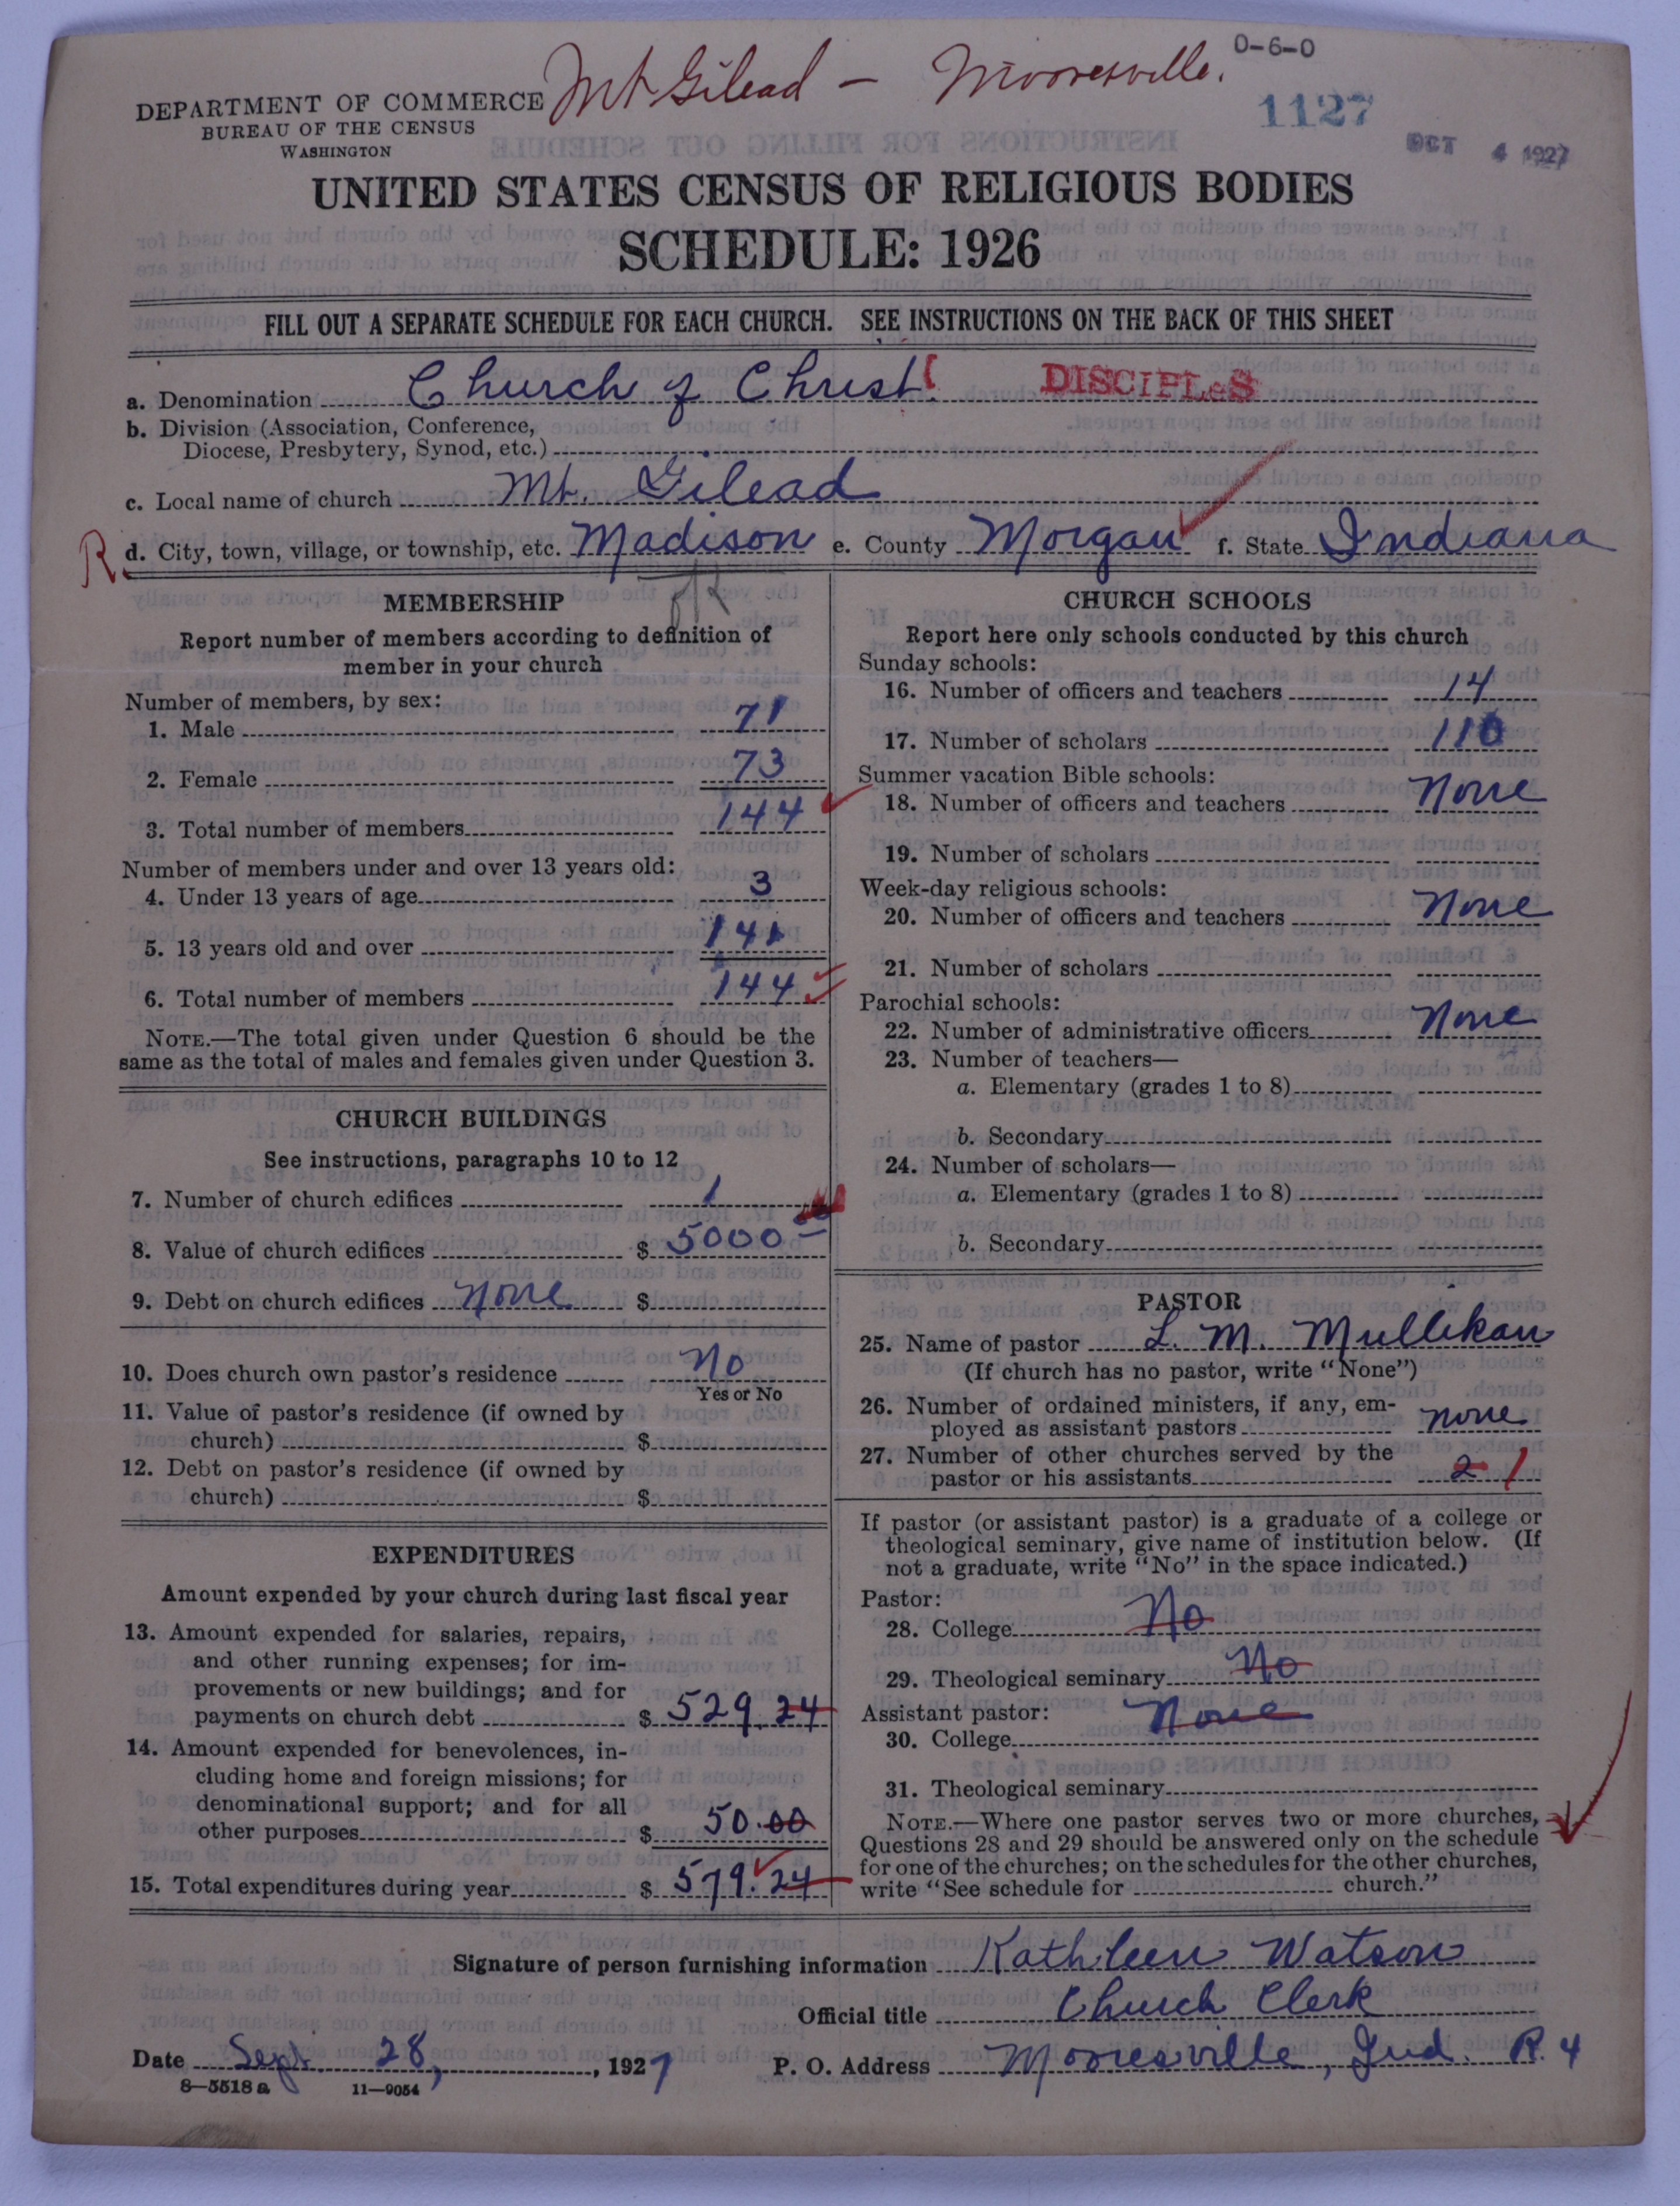 Mt Gilead — Mooresville.
0-6-0
DEPARTMENT OF COMMERCE
BUREAU OF THE CENSUS
WASHINGTON
1127
OCT 4 1927
UNITED STATES CENSUS OF RELIGIOUS BODIES
SCHEDULE: 1926
FILL OUT A SEPARATE SCHEDULE FOR EACH CHURCH. SEE INSTRUCTIONS ON THE BACK OF THIS SHEET
a. Denomination Church of Christ DISCIPLeS
b. Division (Association, Conference,
Diocese, Presbytery, Synod, etc.)
c. Local name of church Mt. Gilead
R d. City, town, village, or township, etc. Madison e. County Morgan f. State Indiana
MEMBERSHIP
Report number of members according to definition of
member in your church
Number of members, by sex:
1. Male 71
2. Female 73
3. Total number of members 144
Number of members under and over 13 years old:
4. Under 13 years of age 3
5. 13 years old and over 141
6. Total number of members 144
NOTE.—The total given under Question 6 should be the
same as the total of males and females given under Question 3.
CHURCH BUILDINGS
See instructions, paragraphs 10 to 12
7. Number of church edifices 1
8. Value of church edifices $ 5000
9. Debt on church edifices None $
10. Does church own pastor's residence No
Yes or No
11. Value of pastor's residence (if owned by
church) $
12. Debt on pastor's residence (if owned by
church) $
EXPENDITURES
Amount expended by your church during last fiscal year
13. Amount expended for salaries, repairs,
and other running expenses; for im-
provements or new buildings; and for
payments on church debt $ 529.24
14. Amount expended for benevolences, in-
cluding home and foreign missions; for
denominational support; and for all
other purposes $ 50.00
15. Total expenditures during year $ 579.24
CHURCH SCHOOLS
Report here only schools conducted by this church
Sunday schools:
16. Number of officers and teachers 14
17. Number of scholars 110
Summer vacation Bible schools:
18. Number of officers and teachers None
19. Number of scholars
Week-day religious schools:
20. Number of officers and teachers None
21. Number of scholars
Parochial schools:
22. Number of administrative officers None
23. Number of teachers—
a. Elementary (grades 1 to 8)
b. Secondary
24. Number of scholars—
a. Elementary (grades 1 to 8)
b. Secondary
PASTOR
25. Name of pastor L. M. Mullikan
(If church has no pastor, write "None")
26. Number of ordained ministers, if any, em-
ployed as assistant pastors none
27. Number of other churches served by the
pastor or his assistants 2 1
If pastor (or assistant pastor) is a graduate of a college or
theological seminary, give name of institution below. (If
not a graduate, write "No" in the space indicated.)
Pastor:
28. College No
29. Theological seminary No
Assistant pastor: None
30. College
31. Theological seminary
NOTE.—Where one pastor serves two or more churches,
Questions 28 and 29 should be answered only on the schedule
for one of the churches; on the schedules for the other churches,
write "See schedule for church."
Signature of person furnishing information Kathleen Watson
Official title Church Clerk
Date Sept 28, , 1927 P. O. Address Mooresville, Ind. R. 4
8—5518 a 11—9054